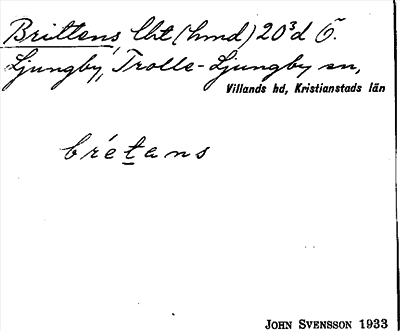 Brittens, lht (hmd) 20³d Ö.
Ljungby, Trolle-Ljungby sn,
Villands hd, Kristianstads län
brétans
JOHN SVENSSON 1933